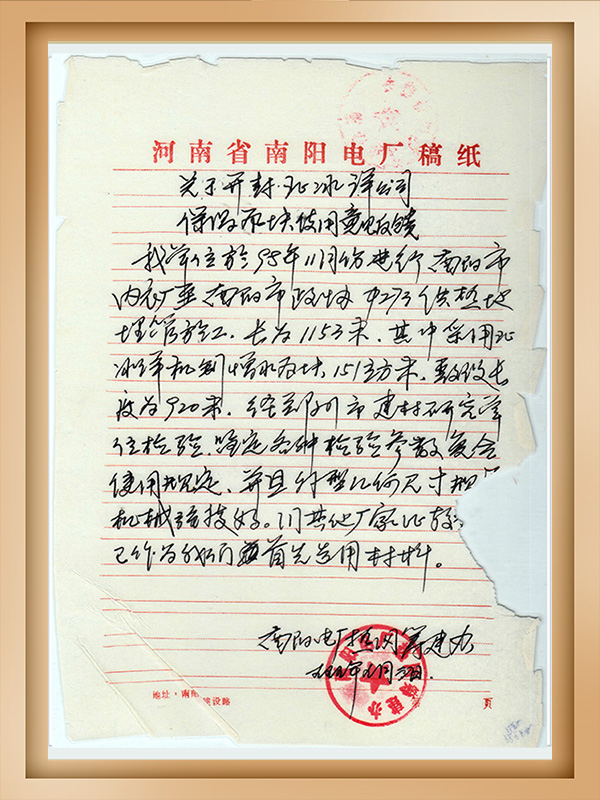 河南省南阳电厂稿纸
关于开封北冰洋公司
保温瓦块使用意见反馈
我单位於95年11月份进行南阳市
内衣厂至南阳市政协 φ273 供热地
埋管施工,长为1153米,其中采用北
冰洋机制憎水瓦块,151立方米,敷设长
度为920米,经郑州市建材研究单
位检验,鉴定各种检验参数复合
使用规定,并且外型几何尺寸规
机械强度好。
已作为我们首先选用材料。
南阳电厂热网筹建办
地址:南 建设路
页